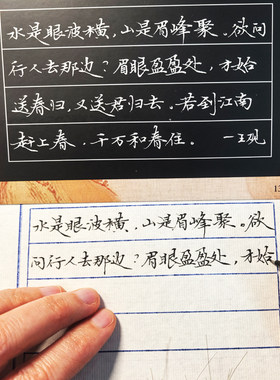 水是眼波横，山是眉峰聚。欲问
行人去那边？眉眼盈盈处，才始
送春归，又送君归去。若到江南
赶上春，千万和春住。 一王观
13
水是眼波横，山是眉峰聚。欲
问行人去那边？眉眼盈盈处，才始